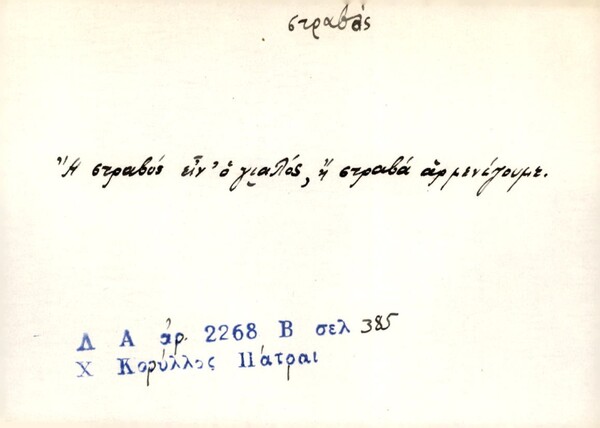 στραβός
Ἢ στραβὸς εἶν' ὁ γιαλός, ἢ στραβὰ ἀρμενίζουμε.
Λ Α ἀρ. 2268 Β σελ 385
Χ Κορύλλος Πάτραι